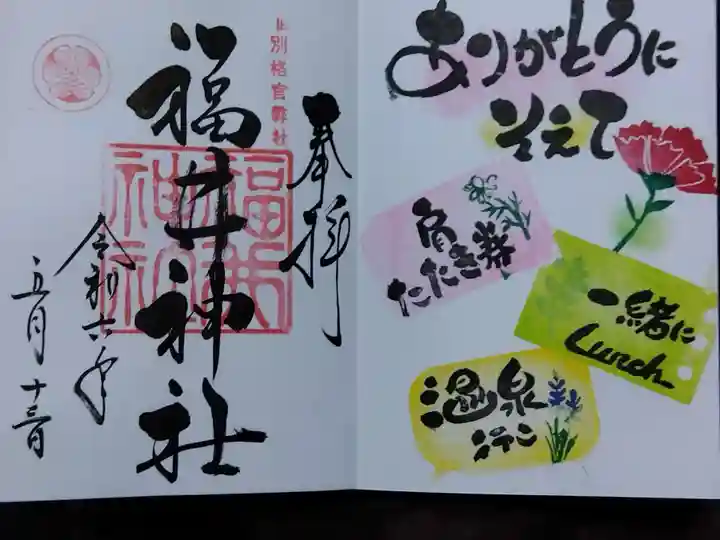 ありがとうに
そえて
肩
たたき券
一緒に
Lunch
温泉
行こ
奉拝
旧別格官幣社
福井神社
福井
神社
令和六年
五月十三日